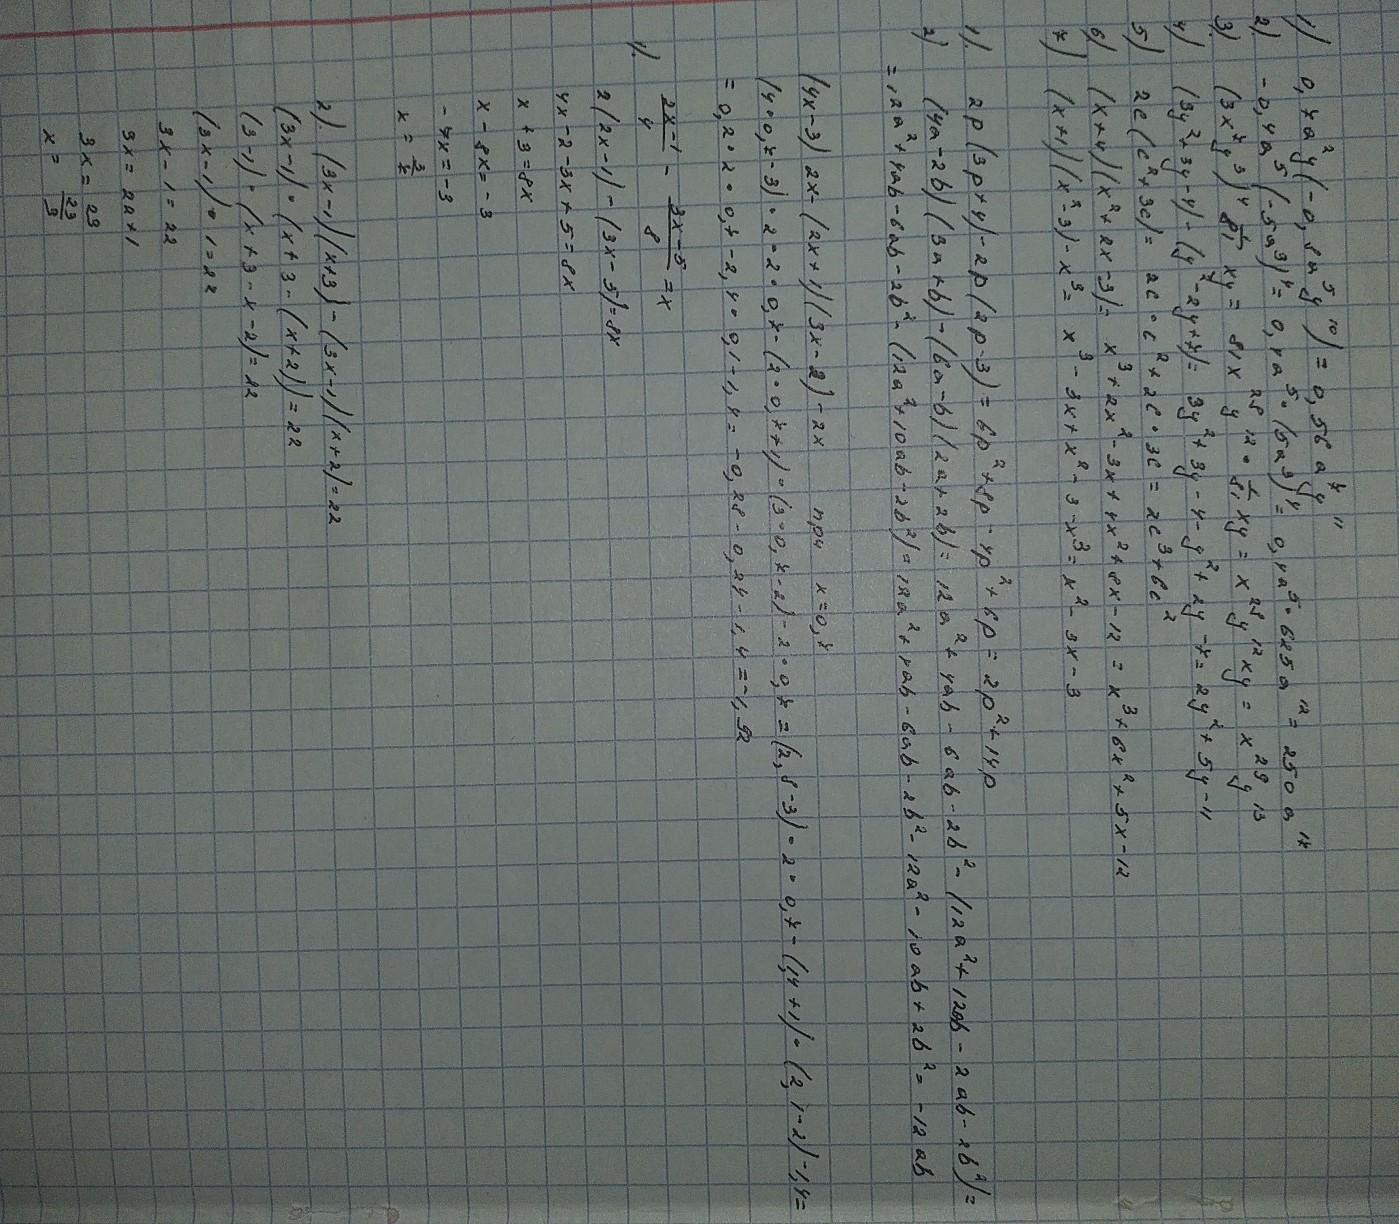 1) 0,7a²y(-0,8a⁵y¹⁰) = 0,56a⁷y¹¹
2) -0,4a⁵(-5a³)⁴ = 0,4a⁵·(5a³)⁴ = 0,4a⁵·625a¹² = 250a¹⁷
3) (3x⁷y³)⁴ 1/81 xy = 81x²⁸y¹²·1/81xy = x²⁸y¹²xy = x²⁹y¹³
4) (3y²+3y-4)-(y²-2y+7)= 3y²+3y-4-y²+2y-7=2y²+5y-11
5) 2c(c²+3c)= 2c·c²+2c·3c=2c³+6c²
6) (x+4)(x²+2x-3)= x³+2x²-3x+4x²+8x-12 = x³+6x²+5x-12
7) (x+1)(x²-3)-x³= x³-3x+x²-3-x³=x²-3x-3
1). 2p(3p+4)-2p(2p-3)=6p²+8p-4p²+6p=2p²+14p
2) (4a-2b)(3a+b)-(6a-b)(2a+2b)= 12a²+4ab-6ab-2b²-(12a²+12ab-2ab-2b²)=
=12a²+4ab-6ab-2b²-(12a²+10ab-2b²)=12a²+4ab-6ab-2b²-12a²-10ab+2b²=-12ab
(4x-3)2x-(2x+1)(3x-2)-2x при x=0,7
(4·0,7-3)·2·0,7-(2·0,7+1)·(3·0,7-2)-2·0,7=(2,8-3)·2·0,7-(1,4+1)·(2,1-2)-1,4=
=0,2·2·0,7-2,4·0,1-1,4=-0,28-0,24-1,4=-1,92
1). 2x-1/4 - 3x-5/8 = x
2(2x-1)-(3x-5)=8x
4x-2-3x+5=8x
x+3=8x
x-8x=-3
-7x=-3
x=3/7
2). (3x-1)(x+3)-(3x-1)(x+2)=22
(3x-1)·(x+3-(x+2))=22
(3-1)·(x+3-x-2)=22
(3x-1)·1=22
3x-1=22
3x=22+1
3x=23
x=23/3